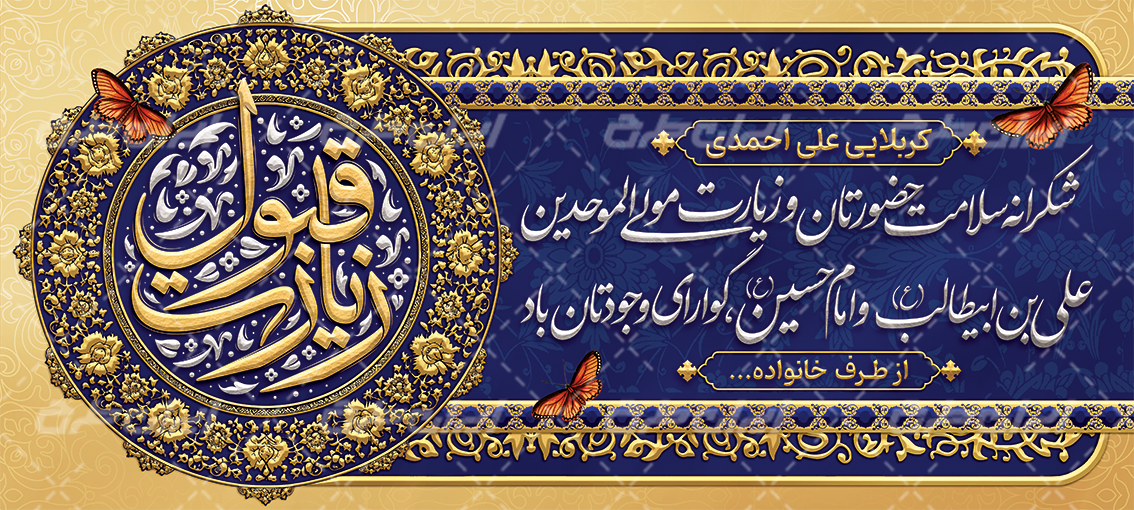 زیارت قبول
کربلایی علی احمدی
شکرانه سلامت حضورتان و زیارت مولی الموحدین
علی بن ابیطالب (ع) و امام حسین (ع)، گوارای وجودتان باد
از طرف خانواده...